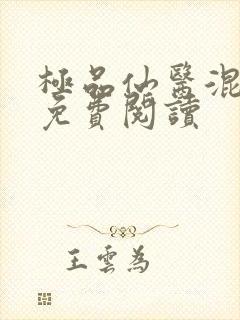 極品仙醫混
免費閱讀
王雲為